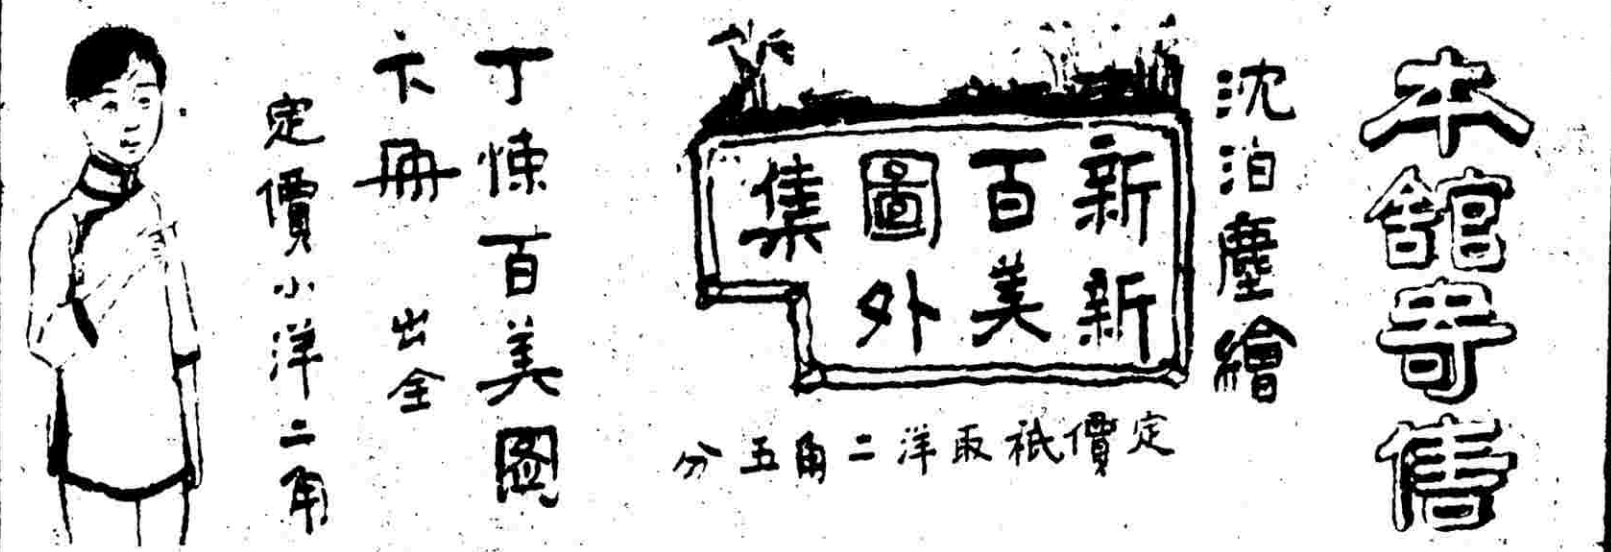 本館寄售
沈泊塵繪
新新
百美
圖外
集
定價祇取洋二角五分
丁悚百美圖
下冊 出全
定價小洋二角